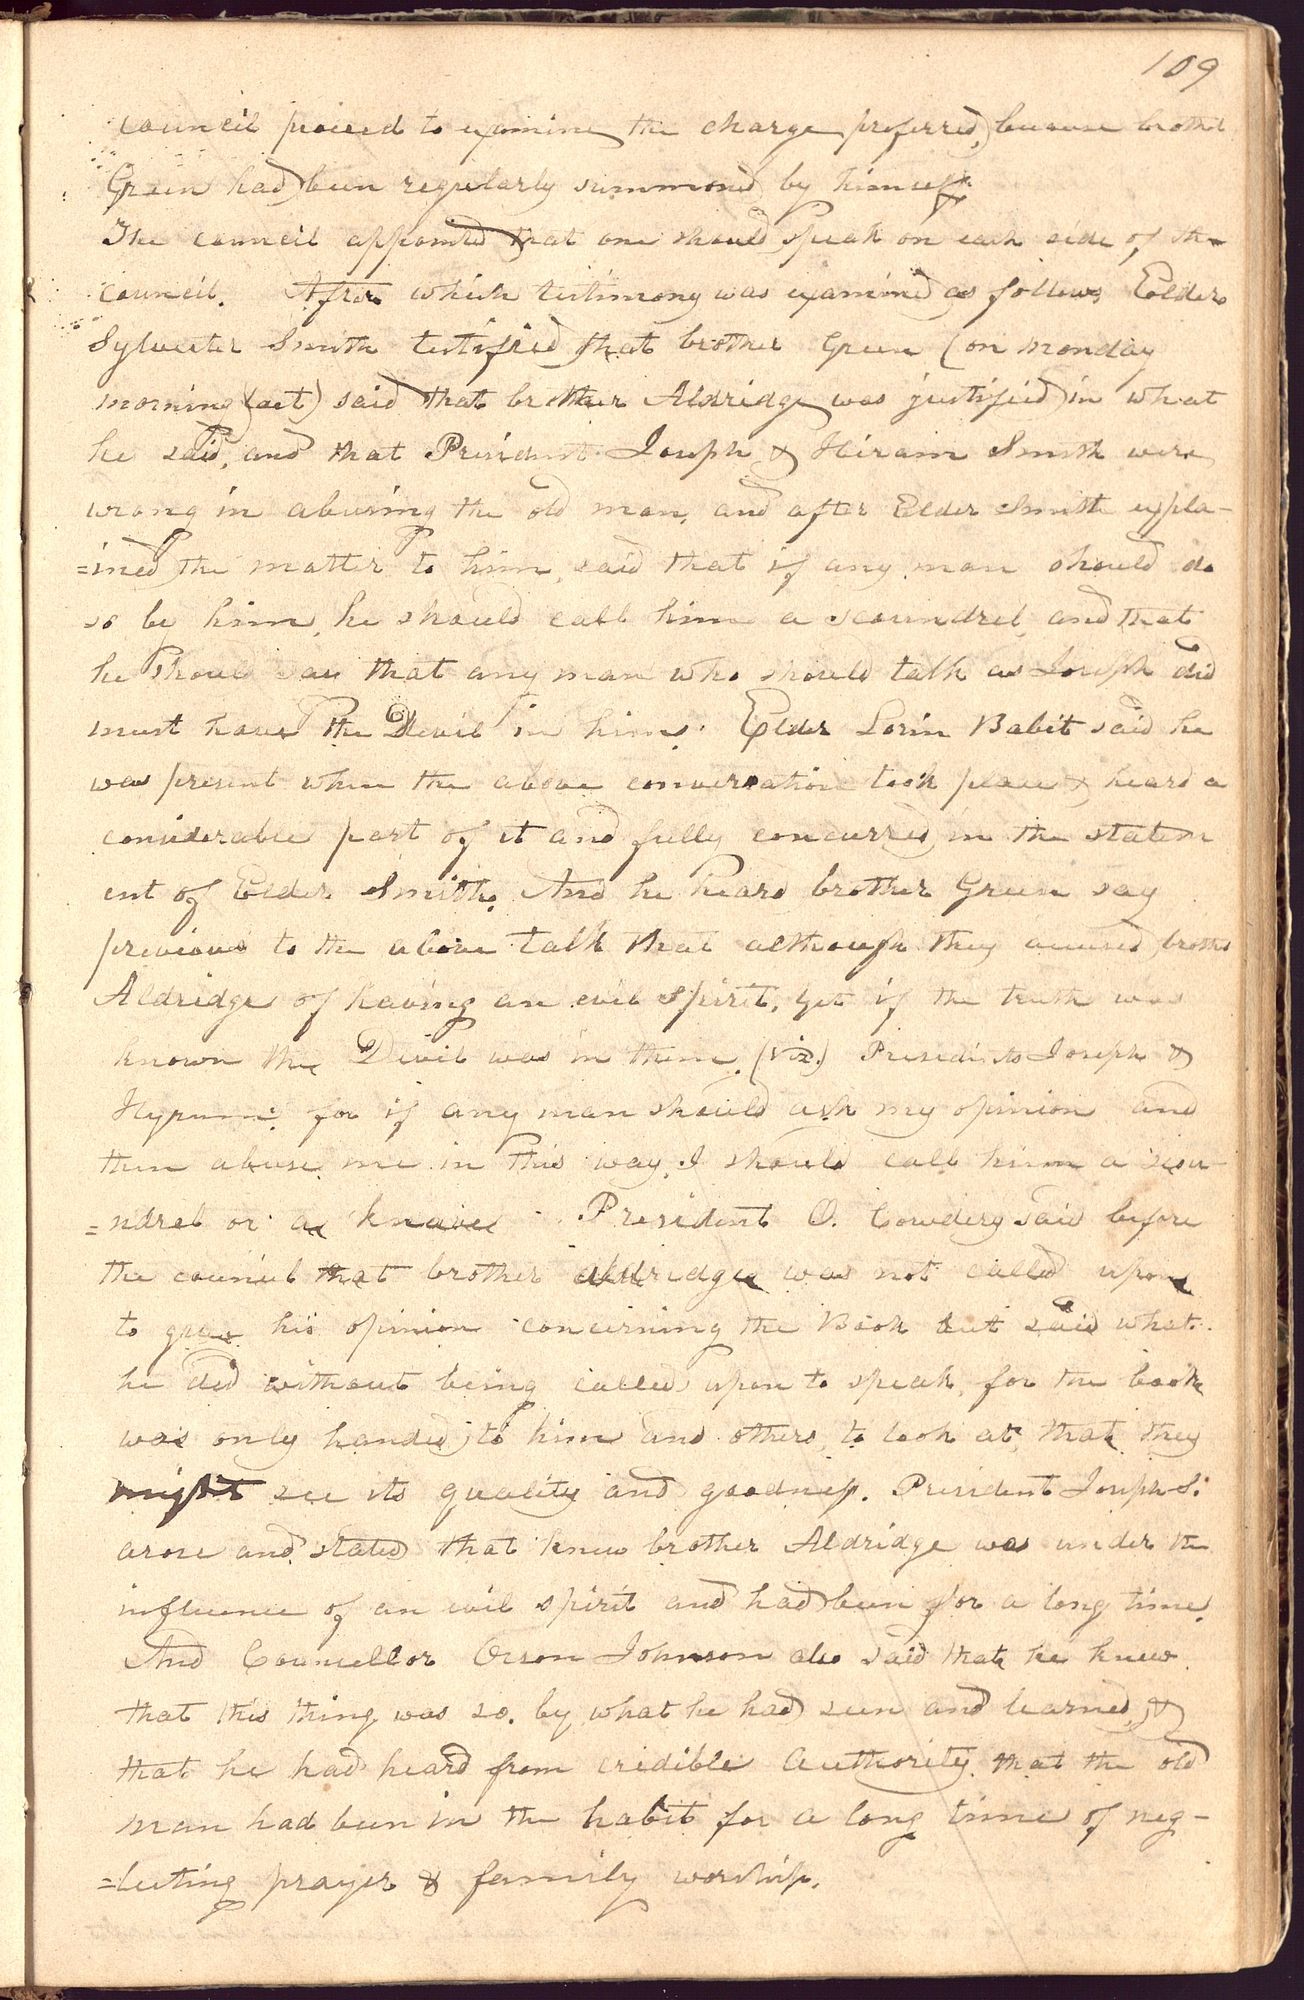 109
council proceed to examine the charge preferred, because brother
Green had been regularly summoned by himself.
The council appointed that one should speak on each side of the
council. After which testimony was examined as follows Eolder
Sylvester Smith testified that brother Green (on monday
morning (act) said that brother Aldridge was justified in what
he said, and that President Joseph & Hiram Smith were
wrong in abusing the old man, and after Elder Smith expla-
=ined the matter to him, said that if any man should do
so by him, he should call him a scoundrel, and that
he should say that any man who should talk as Joseph did
must have the Devil in him. Elder Lorin Babit said he
was present when the above conversation took place & heard a
considerable part of it and fully concurred in the statem
ent of Elder Smith. And he heard brother Green say
previous to the above talk that although they accused brother
Aldridge of having an evil spirit, yet if the truth was
known the Devil was in them, (viz.) Presedints Joseph &
Hyrum: for if any man should ask my opinion and
then abuse me in this way, I should call him a scou-
=ndrel or a knave. President O. Cowdery said before
the council that brother aldridge was not called upon
to give his opinion concerning the Book but said what
he did without being called upon to speak, for the book
was only handed to him and others, to look at, that they
might see its quality and goodness. President Joseph S.
arose and stated that knew brother Aldridge was under the
influence of an evil spirit and had been for a long time.
And Councellor Orson Johnson also said that he knew
that this thing was so, by what he had seen and learned, &
that he had heard from credible authority that the old
man had been in the habit for a long time of neg-
=lecting prayer & family worship.